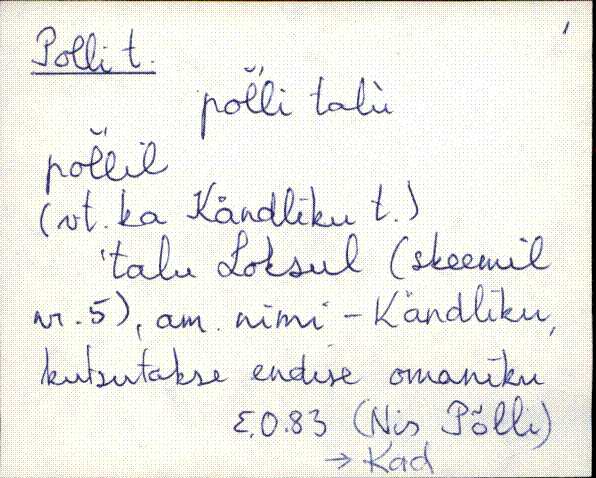 Polli t.
põl̆li talù
põl̆lil
(vt. ka Kändliku t.)
'talu Loksul (skeemil
nr. 5), am. nimi - Kändliku,
kutsutakse endise omaniku
E.O.83 (Nis Põlli)
→ Kad